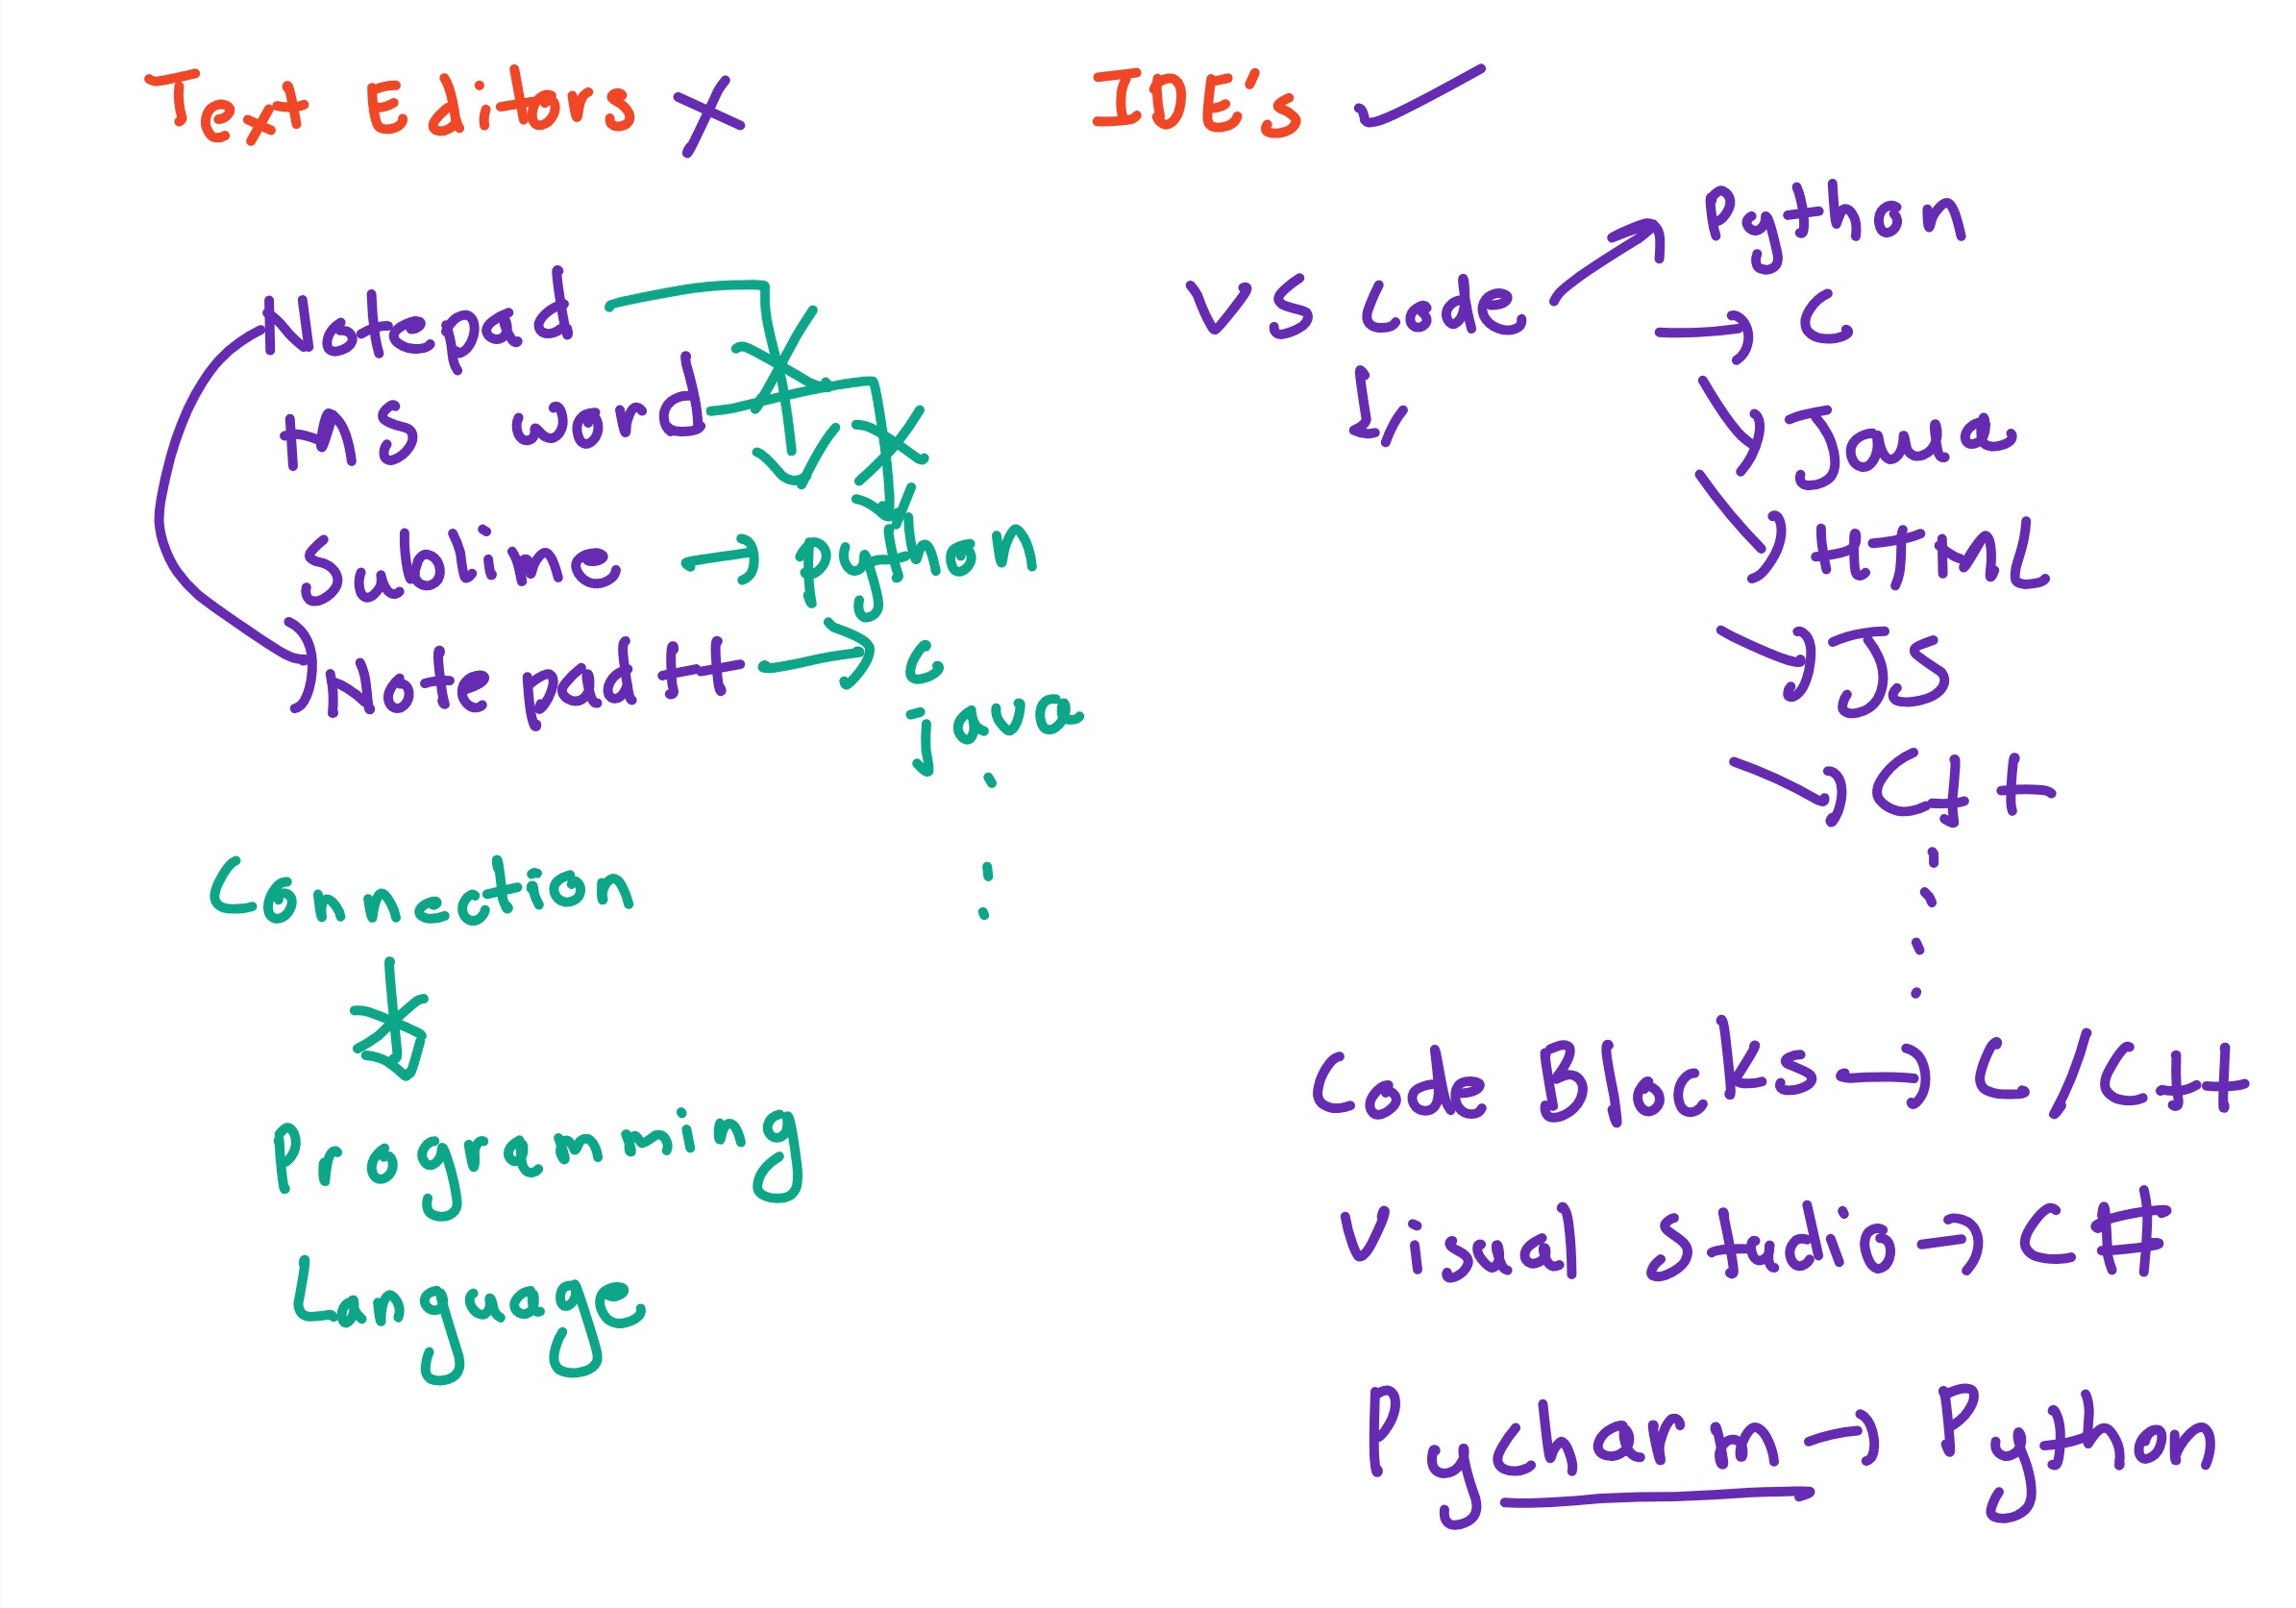 Text Editors
Notepad
MS word
Sublime → python
Notepad++ → c
java
Connection
Programming
Language
IDE's ✓
VS Code → Python
→ C
Java
HTML
JS
C++
Code Blocks → C/C++
Visual Studio → C#
Pycharm → Python